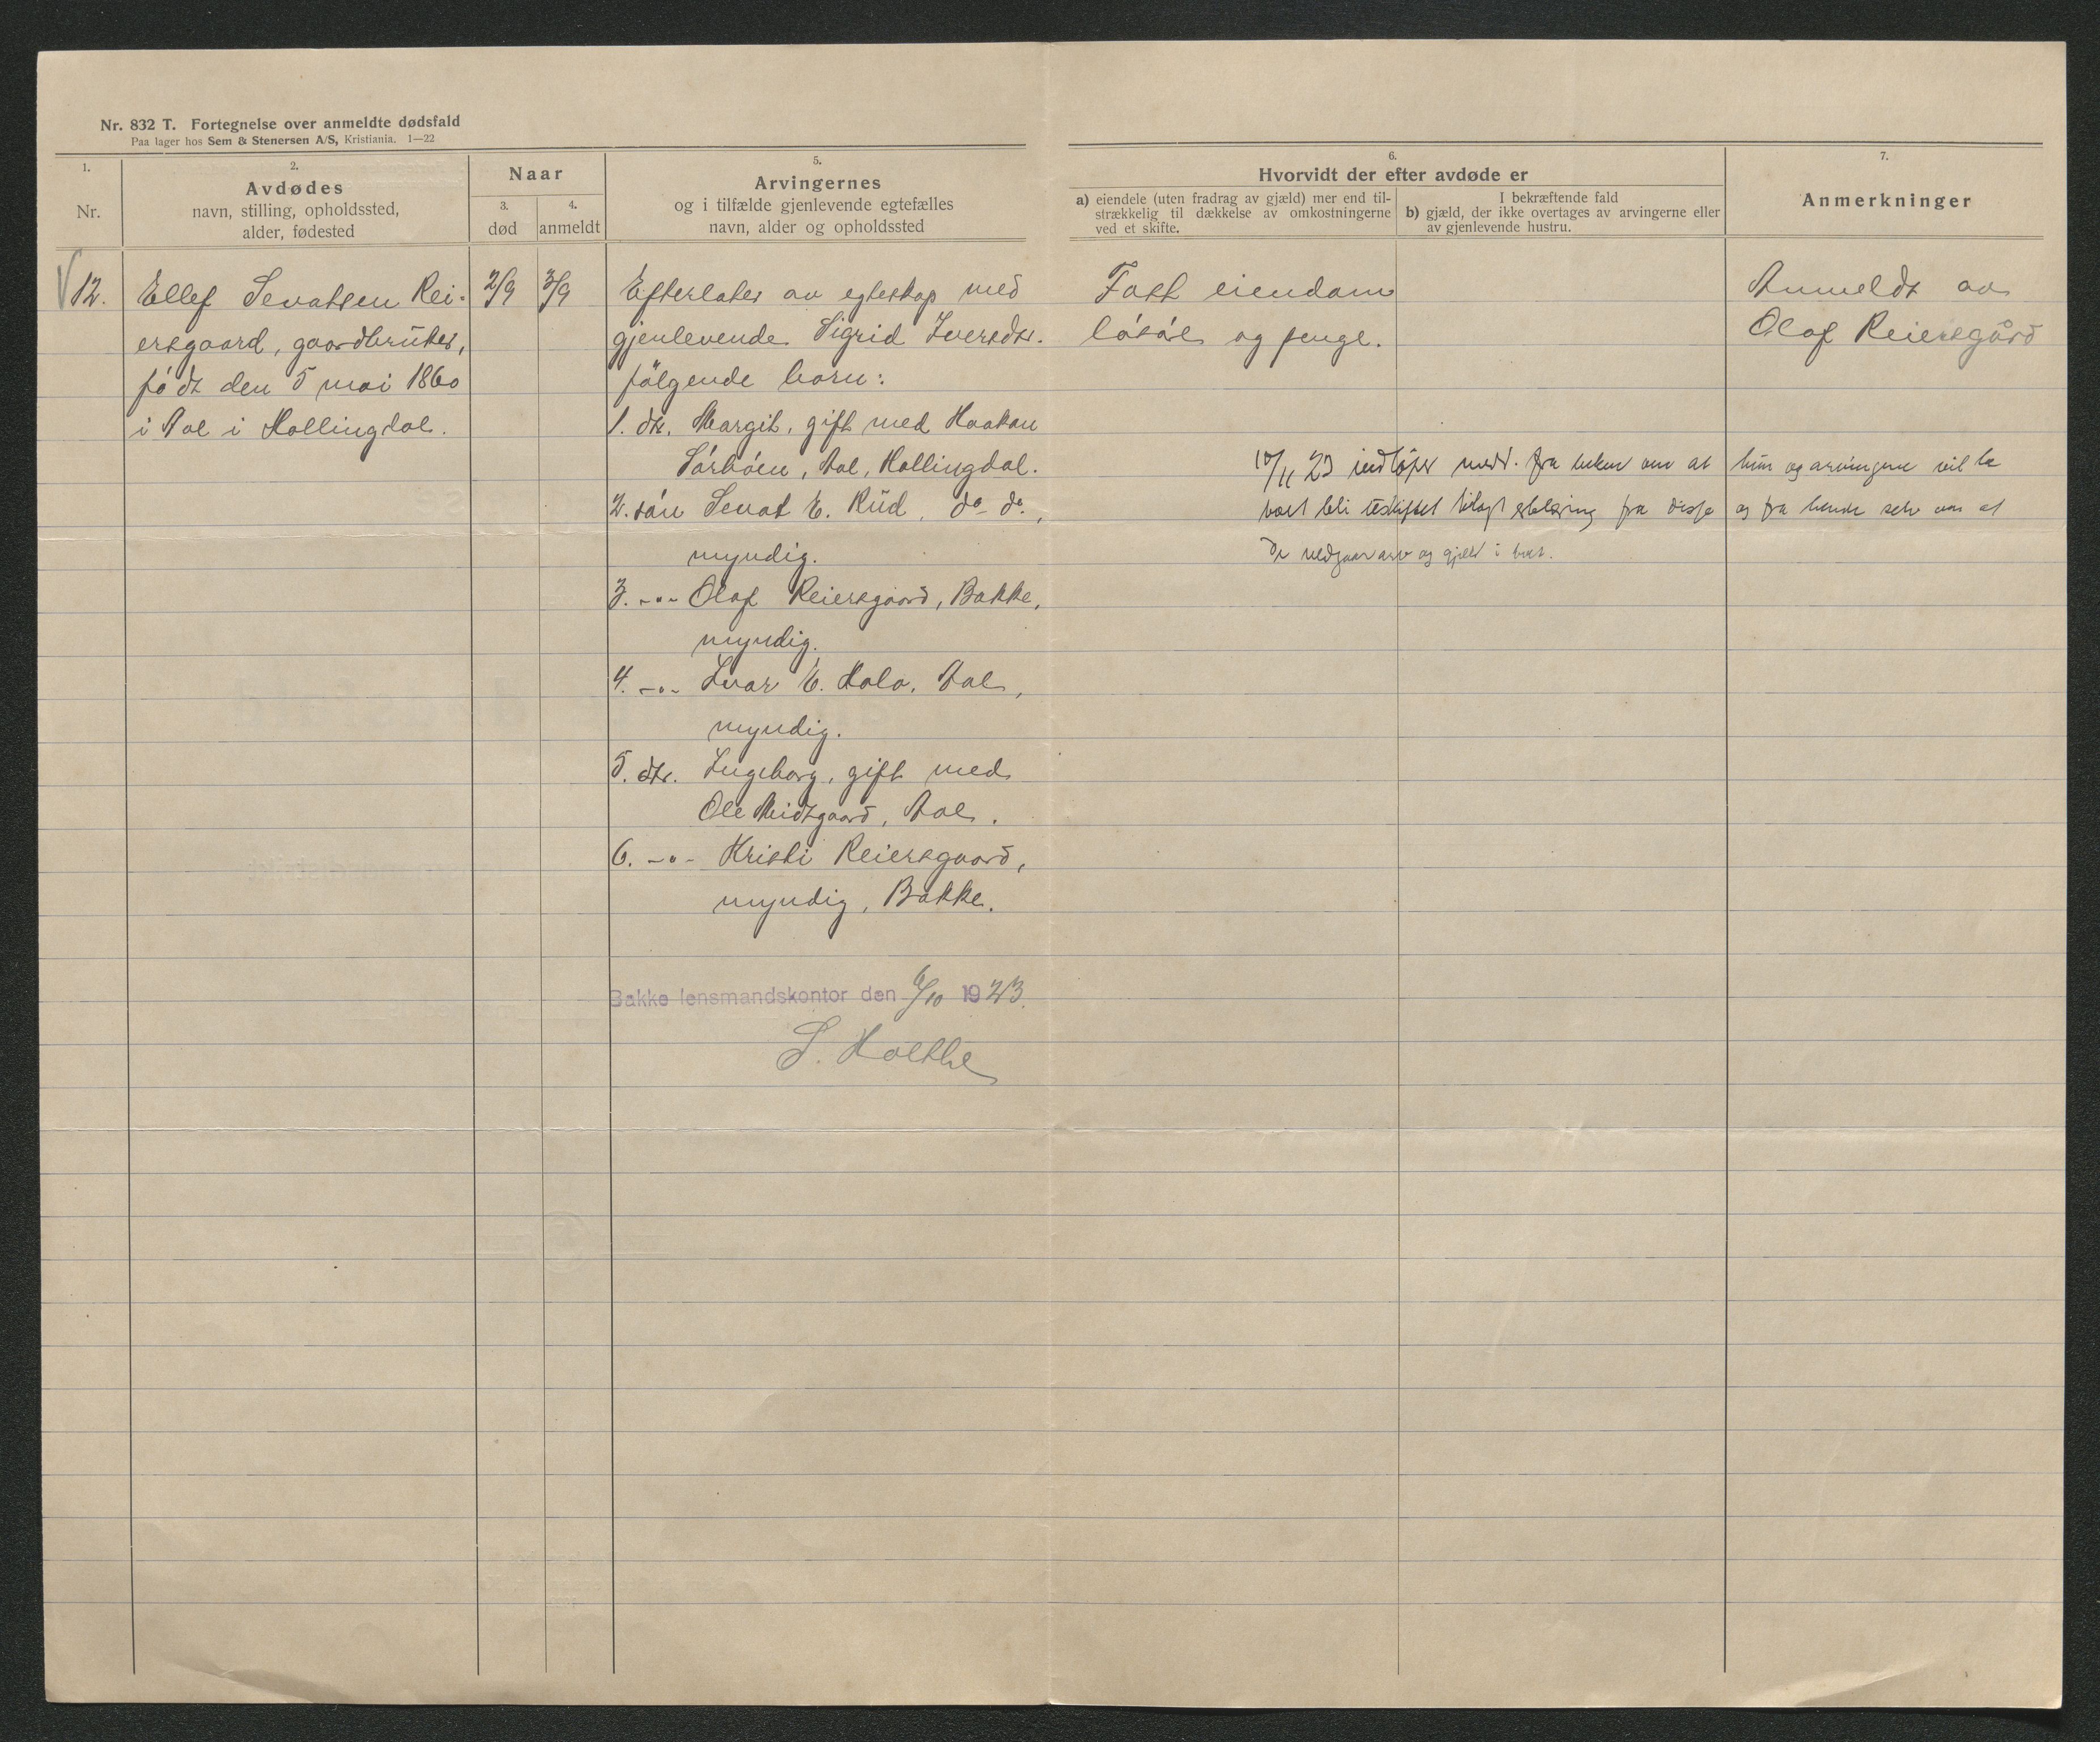 Nr. 832 T. Fortegnelse over anmeldte dødsfald
Paa lager hos Sem & Stenersen A/S, Kristiania. 1—22
1.
Nr.
2.
Avdødes
navn, stilling, opholdssted,
alder, fødested
Naar
3.
død
4.
anmeldt
5.
Arvingernes
og i tilfælde gjenlevende egtefælles
navn, alder og opholdssted
6.
Hvorvidt der efter avdøde er
a) eiendele (uten fradrag av gjæld) mer end til-
strækkelig til dækkelse av omkostningerne
ved et skifte.
I bekræftende fald
b) gjæld, der ikke overtages av arvingerne eller
av gjenlevende hustru.
7.
Anmerkninger
12.
Ellef Sevatsen Rei-
ersgaard, gaardbruker,
födt den 5 mai 1860
i Aal i Hallingdal.
2/9
3/9
Efterlater av egteskap med
gjenlevende Sigrid Iversdtr.
følgende barn:
1. dtr. Margit, gift med Haakon
Sørbøen, Aal, Hallingdal.
2. søn Sevat E. Rud, do do,
myndig.
3. -"- Olaf Reiersgaard, Bakke,
myndig.
4. -"- Ivar E. Holo, Aal,
myndig.
5. dtr. Ingeborg, gift med
Ole Midtgaard, Aal.
6. -"- Kristi Reiersgaard,
myndig, Bakke.
Bakke lensmandskontor den 6/10 1923.
S. Holthe
Fast eiendom
løsøre og penge.
Anmeldt av
Olaf Reiersgård
10/11 23 indløper medd. fra enken om at hun og arvingene vil ta
boet til skifte fra disse og fra hende selv om at
de vedgaar arv og gjæld i boet.